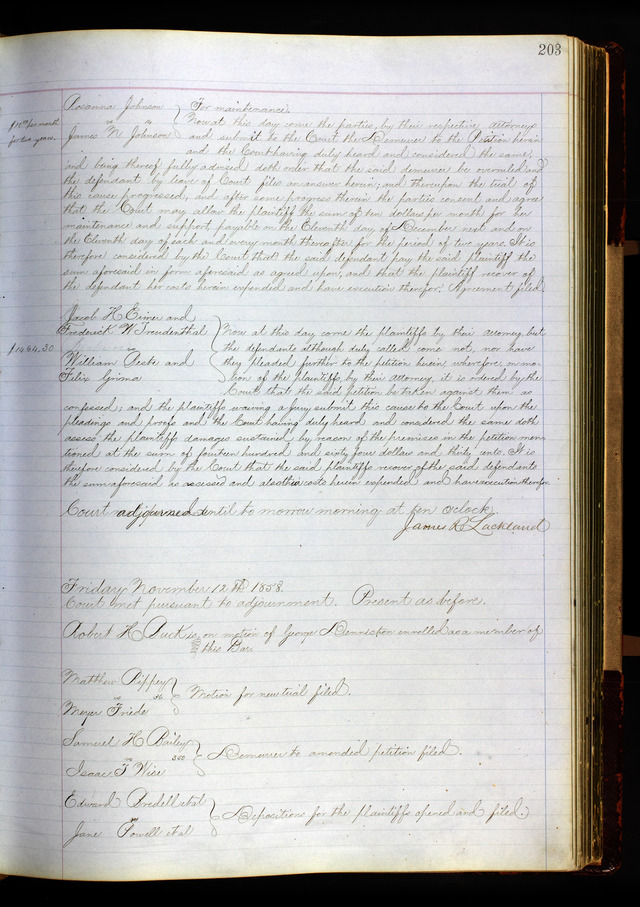 203
Rosanna Johnson } For maintenance.
$10 00 per month
for two years.
vs
James N Johnson
Now at this day come the parties, by their respective attorneys
and submit to the Court the Demurrer to the Petition herein
and the Court having duly heard and considered the same,
and being thereof fully advised doth order that the said demurrer be overruled and
the defendant by leave of Court files an answer herein; and thereupon the trial of
this cause progressed, and after some progress therein the parties consent and agree
that the Court may allow the plaintiff the sum of ten dollars per month for her
maintenance and support, payable on the Eleventh day of December next and on
the Eleventh day of each and every month thereafter for the period of two years. It is
therefore considered by the Court that the said defendant pay the said plaintiff the
sum aforesaid in form aforesaid as agreed upon, and that the plaintiff recover of
the defendant her costs herein expended and have execution therefor. Agreement filed
Jacob H Eimer and
Frederick W Treudenthal
$1464.30
William Peste and
Felix Grima
Now at this day come the plaintiffs by their attorney, but
the defendants although duly called come not, nor have
they pleaded further to the petition herein, wherefore, on mo-
tion of the plaintiffs, by their attorney, it is ordered by the
Court that the said petition be taken against them as
confessed; and the plaintiffs waiving a Jury submit this cause to the Court upon the
pleadings and proofs and the Court having duly heard and considered the same doth
assess the plaintiffs damages sustained by reason of the premises in the petition men-
tioned at the sum of fourteen hundred and sixty four dollars and thirty cents. It is
therefore considered by the Court that the said plaintiffs recover of the said defendants
the sum aforesaid as assessed and also their costs herein expended and have execution therefor.
Court adjourned until to morrow morning at ten o'clock.
James R Lackland
Friday November 12th 1858.
Court met pursuant to adjournment. Present as before.
Robert H Buck is, on motion of George Denniston enrolled as a member of
this Bar.
Matthew Rippey
vs 36
Meyer Friede
} Motion for new trial filed.
Samuel H Bailey
vs 350
Isaac T Wise
} Demurrer to amended petition filed.
Edward Bredell et al
vs
Jane Powell et al
} Depositions for the plaintiffs opened and filed.